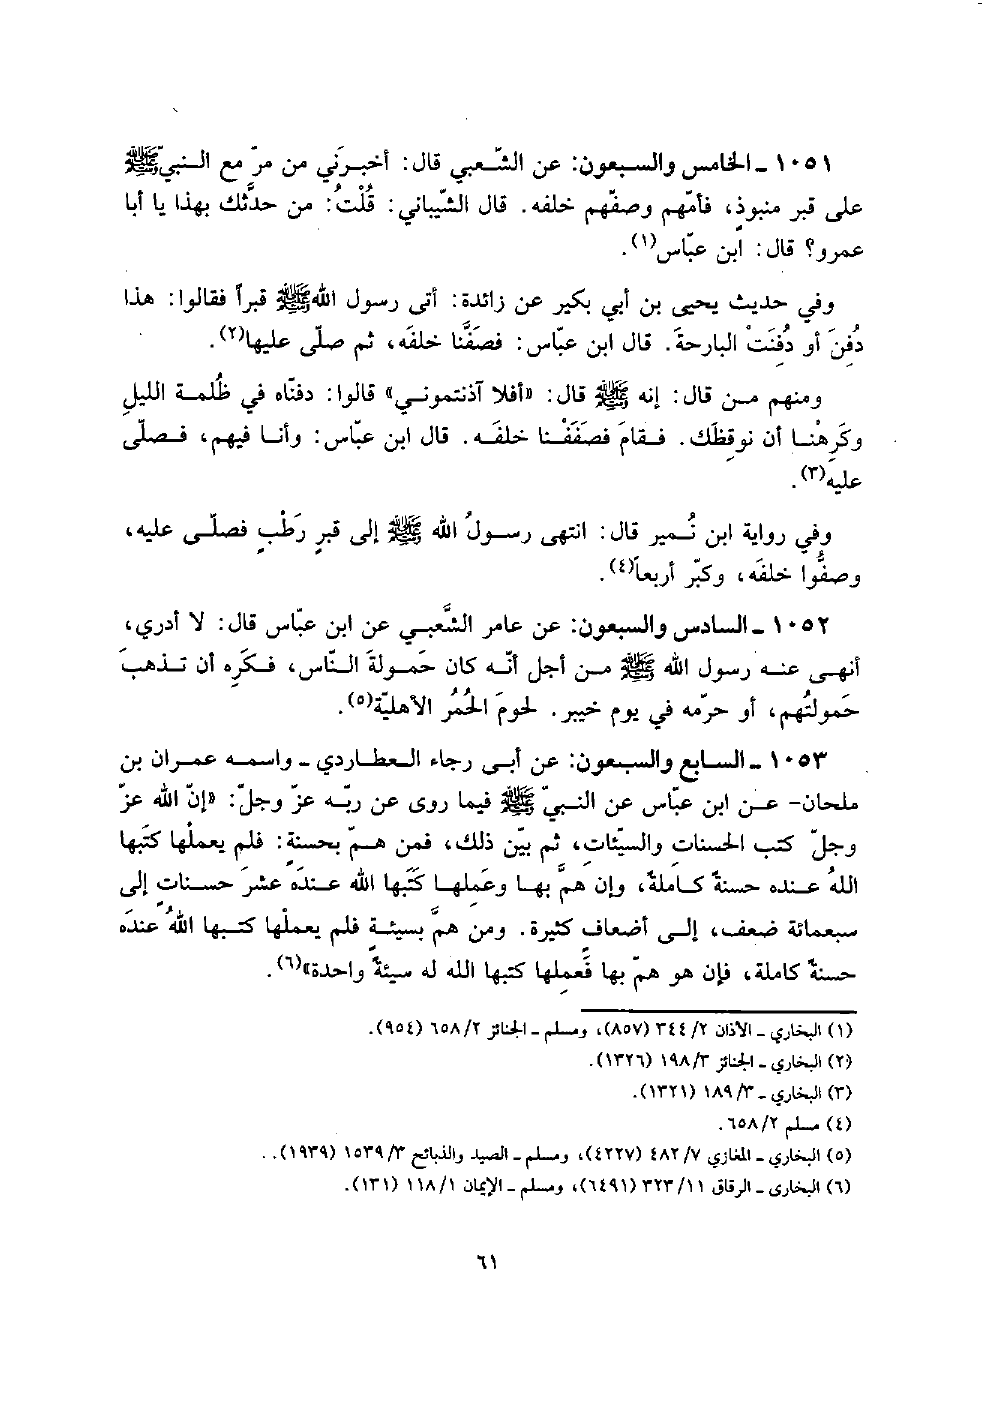 ١٠٥١ ـ الخامس والسبعون: عن الشّعبي قال: أخبرَني من مرّ مع النبيّ ﷺ
على قبر منبوذٍ، فأمّهم وصفّهم خلفه. قال الشّيباني: قُلْتُ: من حدَّثك بهذا يا أبا
عمرو؟ قال: ابن عبّاس(١).
وفي حديث يحيى بن أبي بكير عن زائدة: أتى رسول الله ﷺ قبراً فقالوا: هذا
دُفِنَ أو دُفِنَتْ البارحةَ. قال ابن عبّاس: فصَفَّنا خلفَه، ثم صلّى عليها(٢).
ومنهم من قال: إنه ﷺ قال: «أفلا آذنتموني» قالوا: دفنّاه في ظُلمة الليلِ
وكَرِهْنا أن نوقظَك. فقامَ فصَفَفْنا خلفَه. قال ابن عبّاس: وأنا فيهم، فصلّى
عليه(٣).
وفي رواية ابن نُمير قال: انتهى رسولُ الله ﷺ إلى قبرٍ رَطْبٍ فصلّى عليه،
وصفُّوا خلفَه، وكبّر أربعاً(٤).
١٠٥٢ ـ السادس والسبعون: عن عامر الشَّعبي عن ابن عبّاس قال: لا أدري،
أنهى عنه رسول الله ﷺ من أجل أنّه كان حَمولةَ النّاس، فكَرِه أن تذهبَ
حَمولتُهم، أو حرّمه في يوم خيبر. لحومَ الحُمُر الأهليّة(٥).
١٠٥٣ ـ السابع والسبعون: عن أبي رجاء العطاردي ـ واسمه عمران بن
ملحان- عن ابن عبّاس عن النبيّ ﷺ فيما روى عن ربّه عزّ وجلّ: «إنّ الله عزّ
وجلّ كتب الحسناتِ والسيّئات، ثم بيّن ذلك، فمن همّ بحسنةٍ: فلم يعملْها كتَبها
اللهُ عنده حسنةً كاملةً، وإن همَّ بها وعَمِلها كَتَبها الله عندَه عشرَ حسناتٍ إلى
سبعمائة ضعف، إلى أضعاف كثيرة. ومن همَّ بسيئةٍ فلم يعملْها كتبها اللهُ عندَه
حسنةً كاملة، فإن هو همّ بها فَعمِلها كتبها الله له سيئةً واحدة»(٦).
(١) البخاري ـ الأذان ٣٤٤/٢ (٨٥٧)، ومسلم ـ الجنائز ٦٥٨/٢ (٩٥٤).
(٢) البخاري ـ الجنائز ١٩٨/٣ (١٣٢٦).
(٣) البخاري ـ ١٨٩/٣ (١٣٢١).
(٤) مسلم ٦٥٨/٢.
(٥) البخاري ـ المغازي ٤٨٢/٧ (٤٢٢٧)، ومسلم ـ الصيد والذبائح ١٥٣٩/٣ (١٩٣٩). .
(٦) البخاري ـ الرقاق ٣٢٣/١١ (٦٤٩١)، ومسلم ـ الإيمان ١١٨/١ (١٣١).
٦١